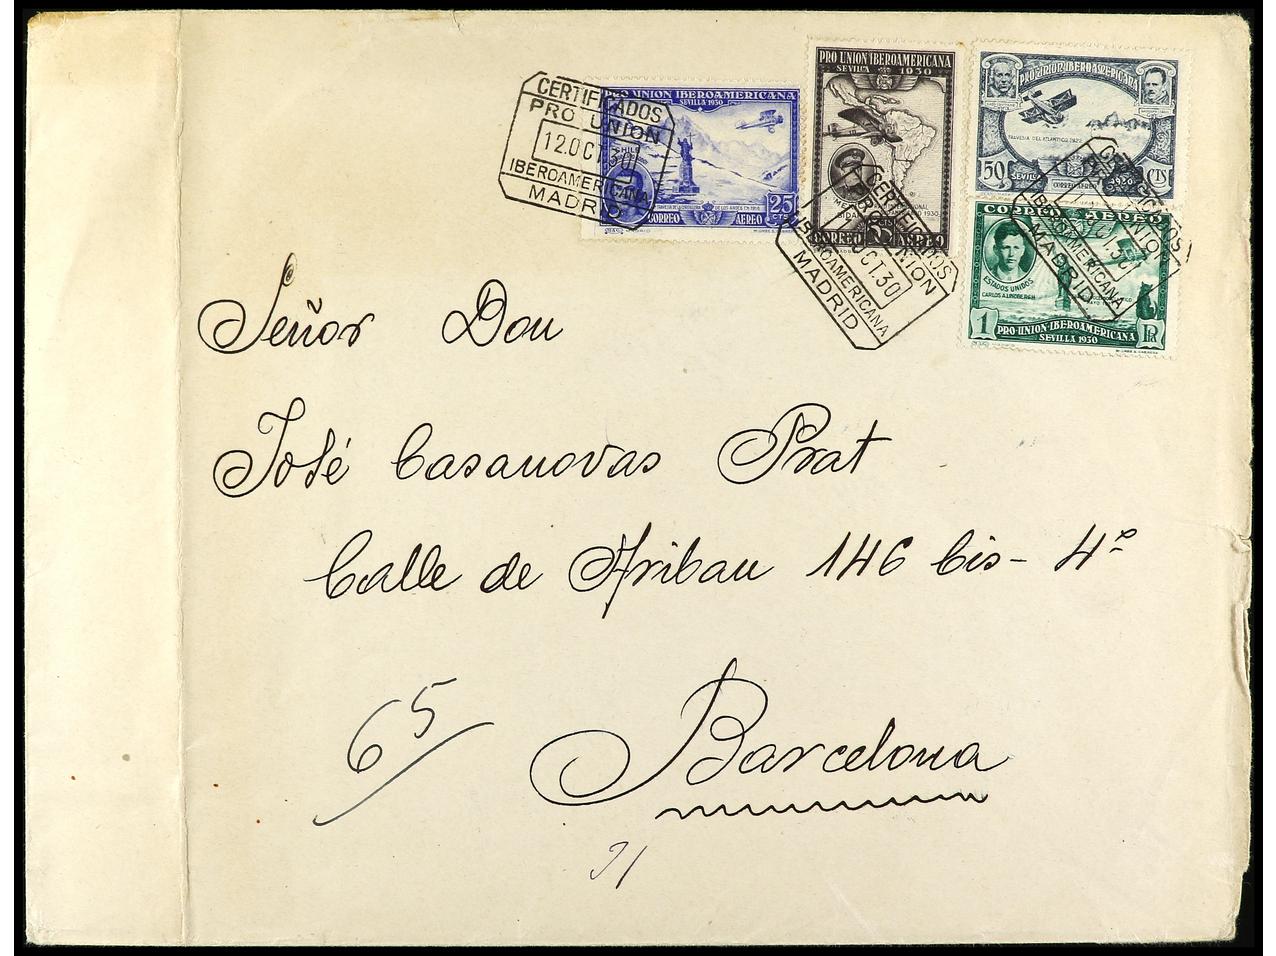 CERTIFICADOS
PRO UNION
12.OCT.30
IBEROAMERICANA
MADRID
UNION IBEROAMERICANA
SEVILLA 1930
CHILE
25
CTS
CORREO AEREO
PRO UNION IBEROAMERICANA
SEVILLA 1930
CORREO AEREO
CERTIFICADOS
UNION
OCT.30
IBEROAMERICANA
MADRID
PRO UNION IBEROAMERICANA
TRAVESIA DEL ATLANTICO
50 SEVILLA CTS
CORREO AEREO
IBEROAMERICANA
MADRID
CORREO AEREO
ESTADOS UNIDOS
CARLOS A. LINDBERGH
1 PRO-UNION-IBEROAMERICANA
SEVILLA 1930
Señor Don
José Casanovas Prat
Calle de Aribau 146 bis - 4º
65
Barcelona